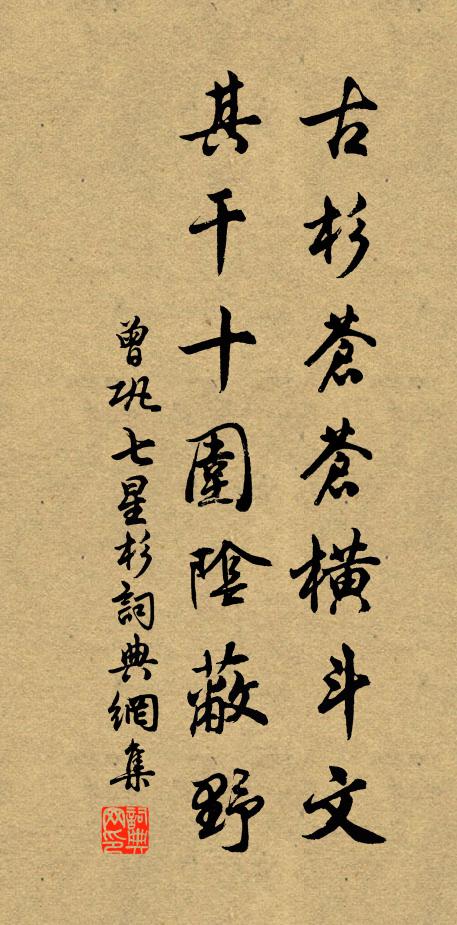 古杉蒼蒼橫斗文
其干十圍陰蔽野
曾巩七星杉詞典網集
詞典网印